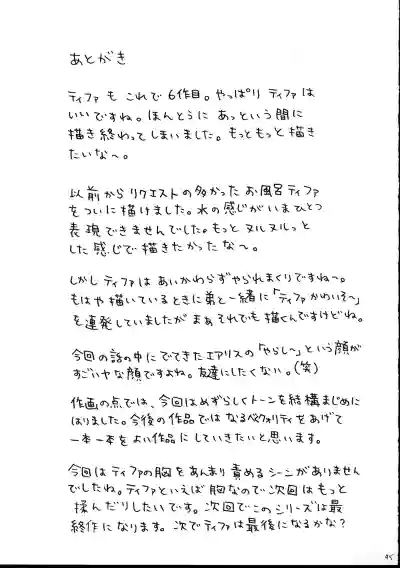 あとがき
ティファも これで 6作目。やっぱり ティファは
いいですね。ほんとうに あっという間に
描き終わってしまいました。もっともっと描き
たいな〜。
以前からリクエストの多かったお風呂ティファ
をついに描けました。水の感じがいまひとつ
表現できませんでした。もっと ヌルヌルっと
した感じで描きたかったな〜。
しかしティファはあいかわらずやられまくりですね〜。
もはや描いているときに弟と一緒に「ティファかわいそ〜」
を連発していましたが まぁそれでも描くんですけどね。
今回の話の中にでてきたエアリスの「やらし〜」という顔が
すごいヤな顔ですよね。友達にしたくない。(笑)
作画の点では、今回はめずらしくトーンを結構まじめに
はりました。今後の作品では なるべくクオリティをあげて
一本一本をよい作品に していきたいと思います。
今回はティファの胸をあんまり責めるシーンがありません
でしたね。ティファといえば胸なので次回はもっと
揉んだりしたいです。次回でこのシリーズは最
終作になります。次でティファは最後になるかな?
45